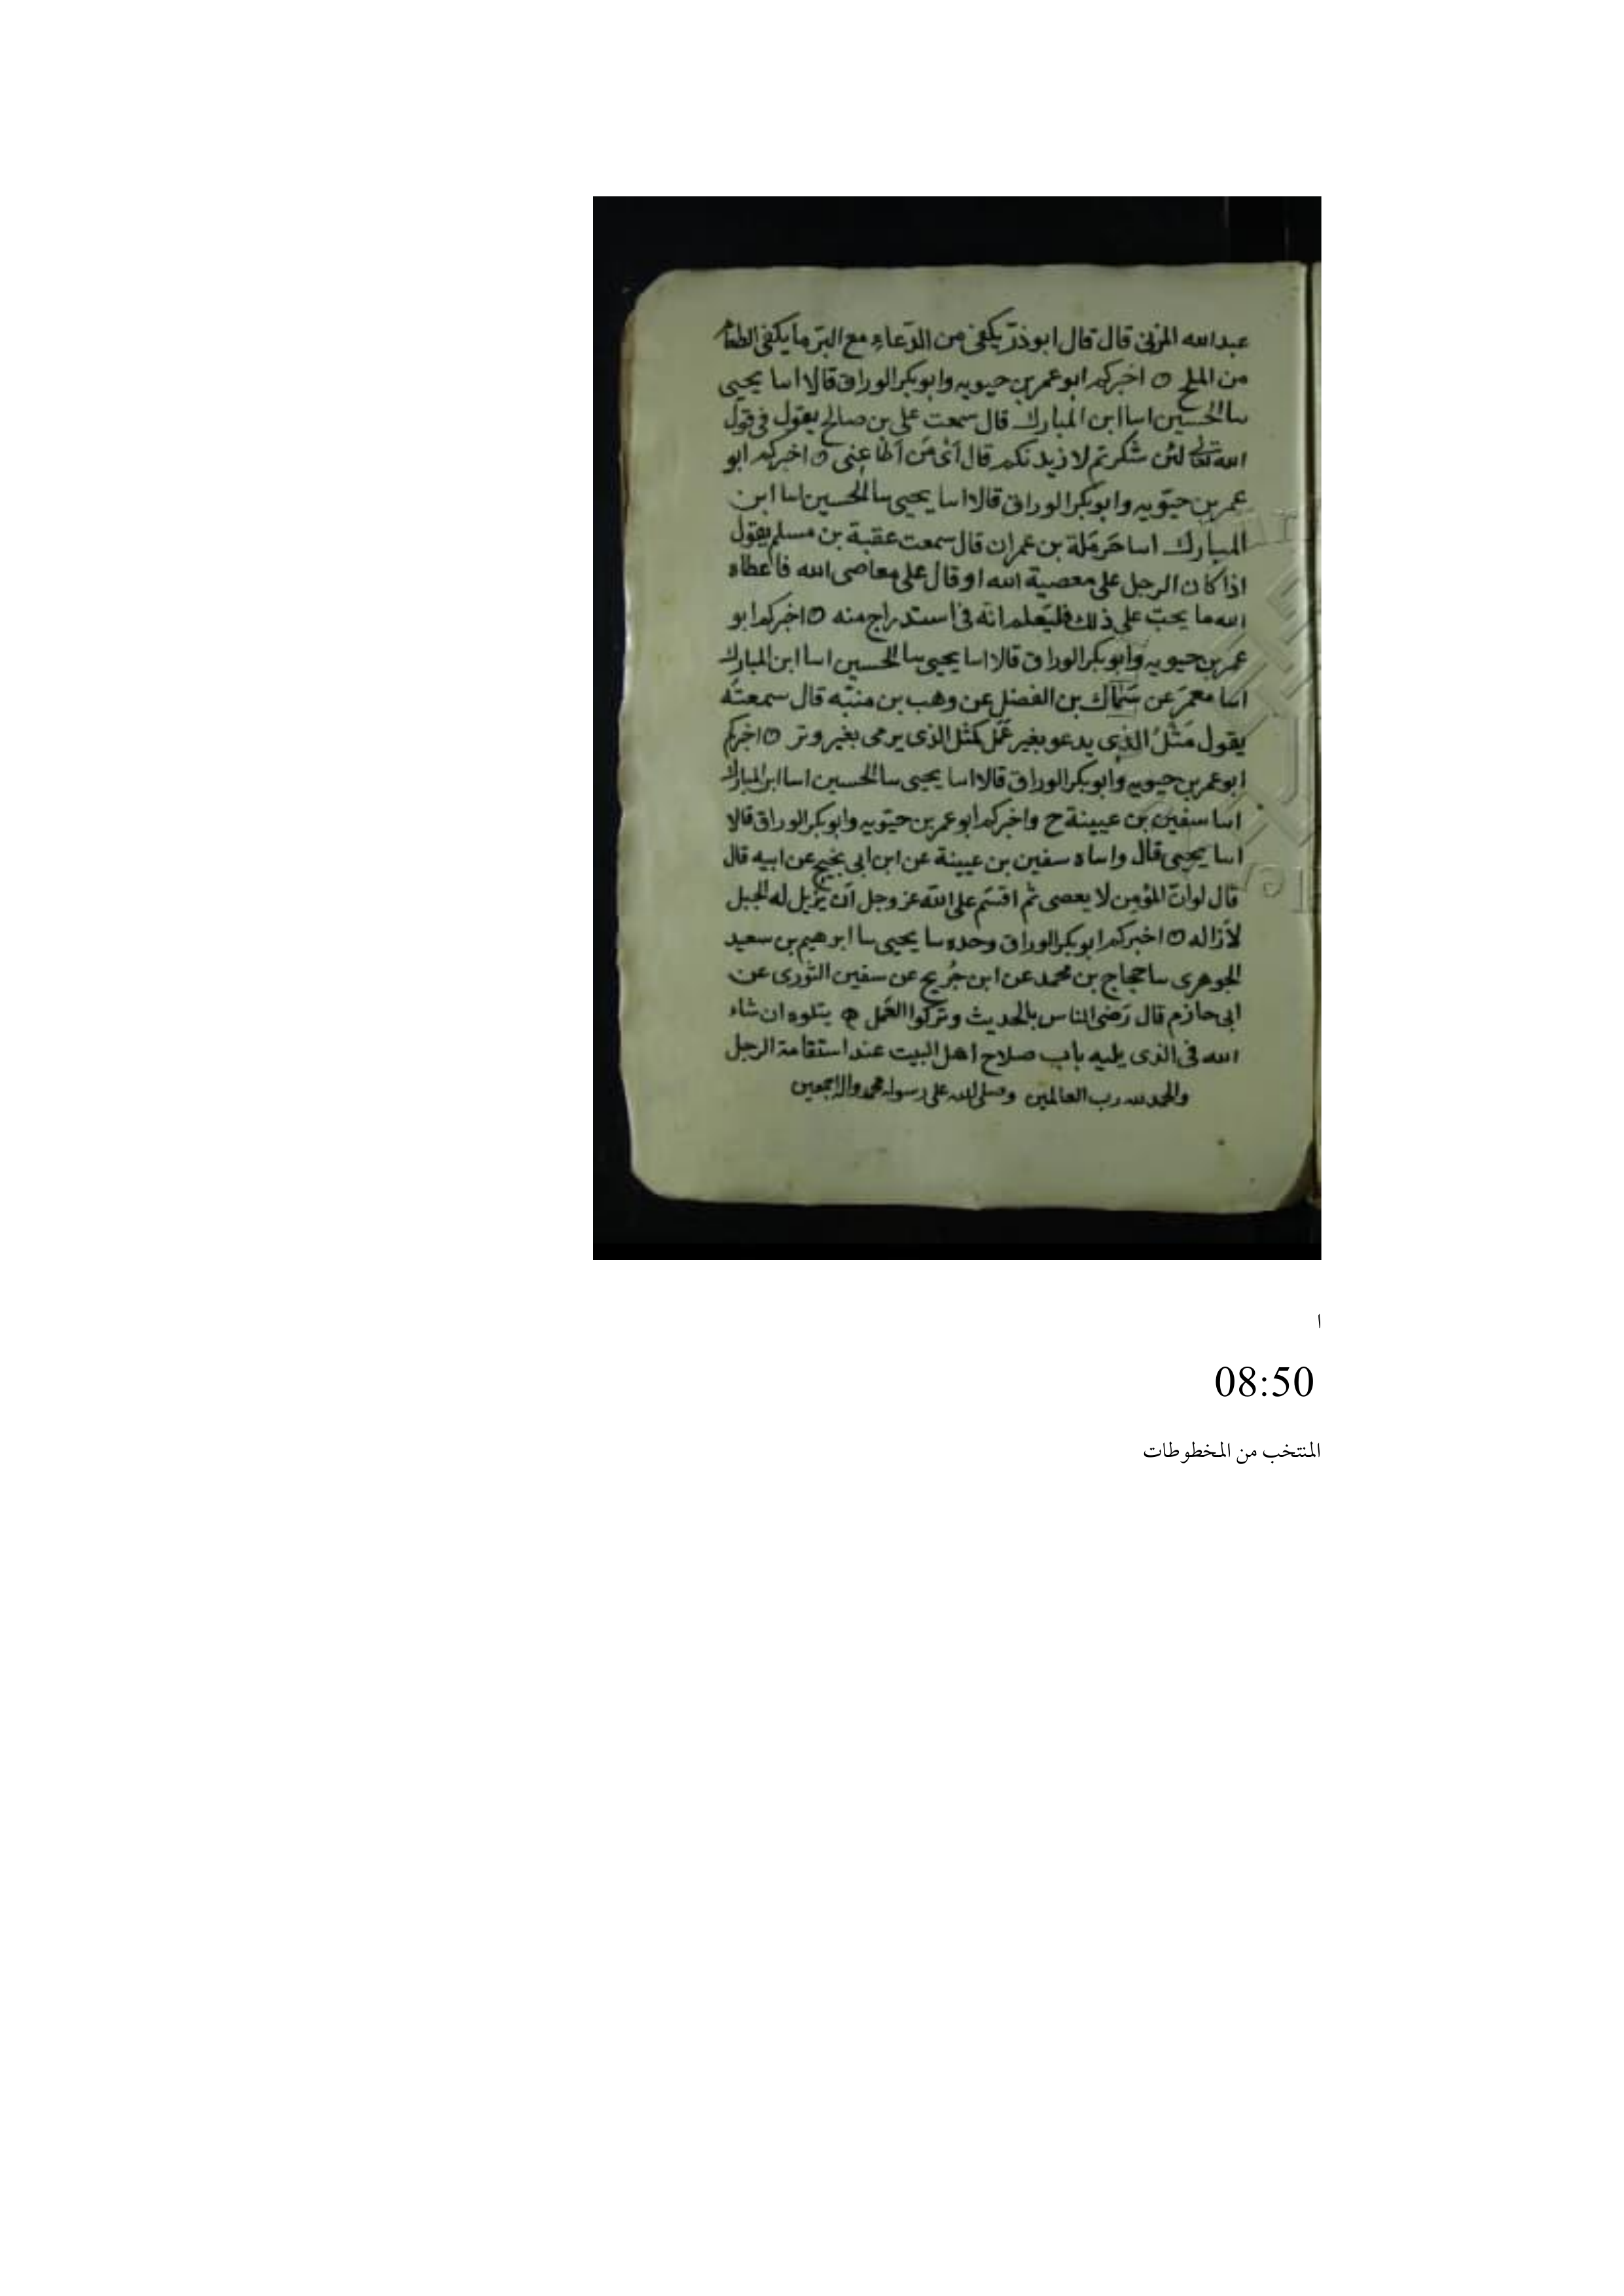 عبد الله المزني قال قال ابو ذرّ يكفى من الدّعاءِ مع البرّ ما يكفى الطعام
من الملح ه اخبركم ابو عمر بن حيويه وابو بكر الوراق قالا انبا يحيى
نا الحسين انبا ابن المبارك قال سمعت على بن صالح يقول فى قول
الله تعالى لئن شكرتم لازيدنكم قال أىْ مَن أطاعنى ه اخبركم ابو
عمر بن حيّويه وابو بكر الوراق قالا انبا يحيى نا الحسين انبا ابن
المبارك انبا حَرمَلة بن عمران قال سمعت عقبة بن مسلم يقول
اذا كان الرجل على معصية الله او قال على معاصى الله فاعطاه
الله ما يحبّ على ذلك فليَعلم انّه فى استدراج منه ه اخبركم ابو
عمر بن حيويه وابو بكر الوراق قالا انبا يحيى نا الحسين انبا ابن المبارك
انبا معمَر عن سَمّاك بن الفضل عن وهب بن منبّه قال سمعتُه
يقول مَثَلُ الذى يدعو بغير عَمَل كمثل الذى يرمى بغير وتر ه اخبركم
ابو عمر بن حيويه وابو بكر الوراق قالا انبا يحيى نا الحسين انبا ابن المبارك
انبا سفين بن عيينة ح واخبركم ابو عمر بن حيّويه وابو بكر الوراق قالا
انبا يحيى قال وانباه سفين بن عيينة عن ابن ابى نجيح عن ابيه قال
قال لو انّ المؤمن لا يعصى ثم اقسَم على الله عز وجل أن يُزيل له الجبل
لأزاله ه اخبركم ابو بكر الوراق وحده نا يحيى نا ابرهيم بن سعيد
الجوهرى نا حجاج بن محمد عن ابن جُريج عن سفين الثورى عن
ابى حازم قال رَضى الناس بالحديث وتركوا العَمل ه يتلوه ان شاء
الله فى الذى يليه باب صلاح اهل البيت عند استقامة الرجل
والحمد لله رب العالمين وصلى الله على رسوله محمد واله اجمعين
ا
08:50
المنتخب من المخطوطات